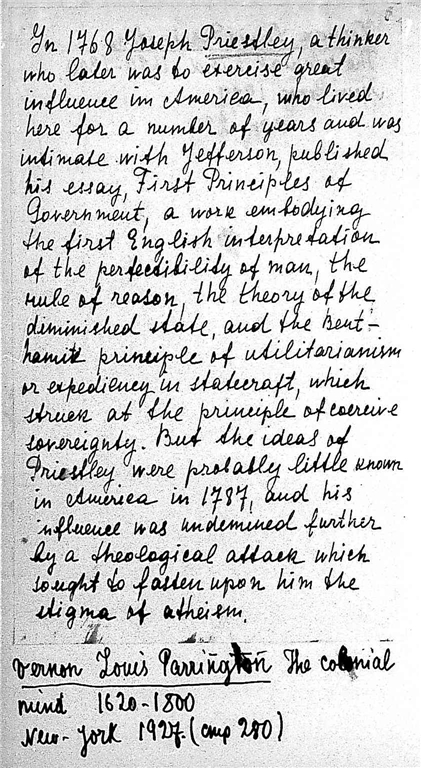 In 1768 Joseph Priestley, a thinker
who later was to exercise great
influence in America, who lived
here for a number of years and was
intimate with Jefferson, published
his essay, First Principles of
Government, a work embodying
the first English interpretation
of the perfectibility of man, the
rule of reason, the theory of the
diminished state, and the Bent-
hamite principle of utilitarianism
or expediency in statecraft, which
struck at the principle of coercive
sovereignty. But the ideas of
Priestley were probably little known
in America in 1787, and his
influence was undemined further
by a theological attack which
sought to fasten upon him the
stigma of atheism.
Vernon Louis Parrington The colonial
mind 1620-1800
New-York 1927. (стр 280)